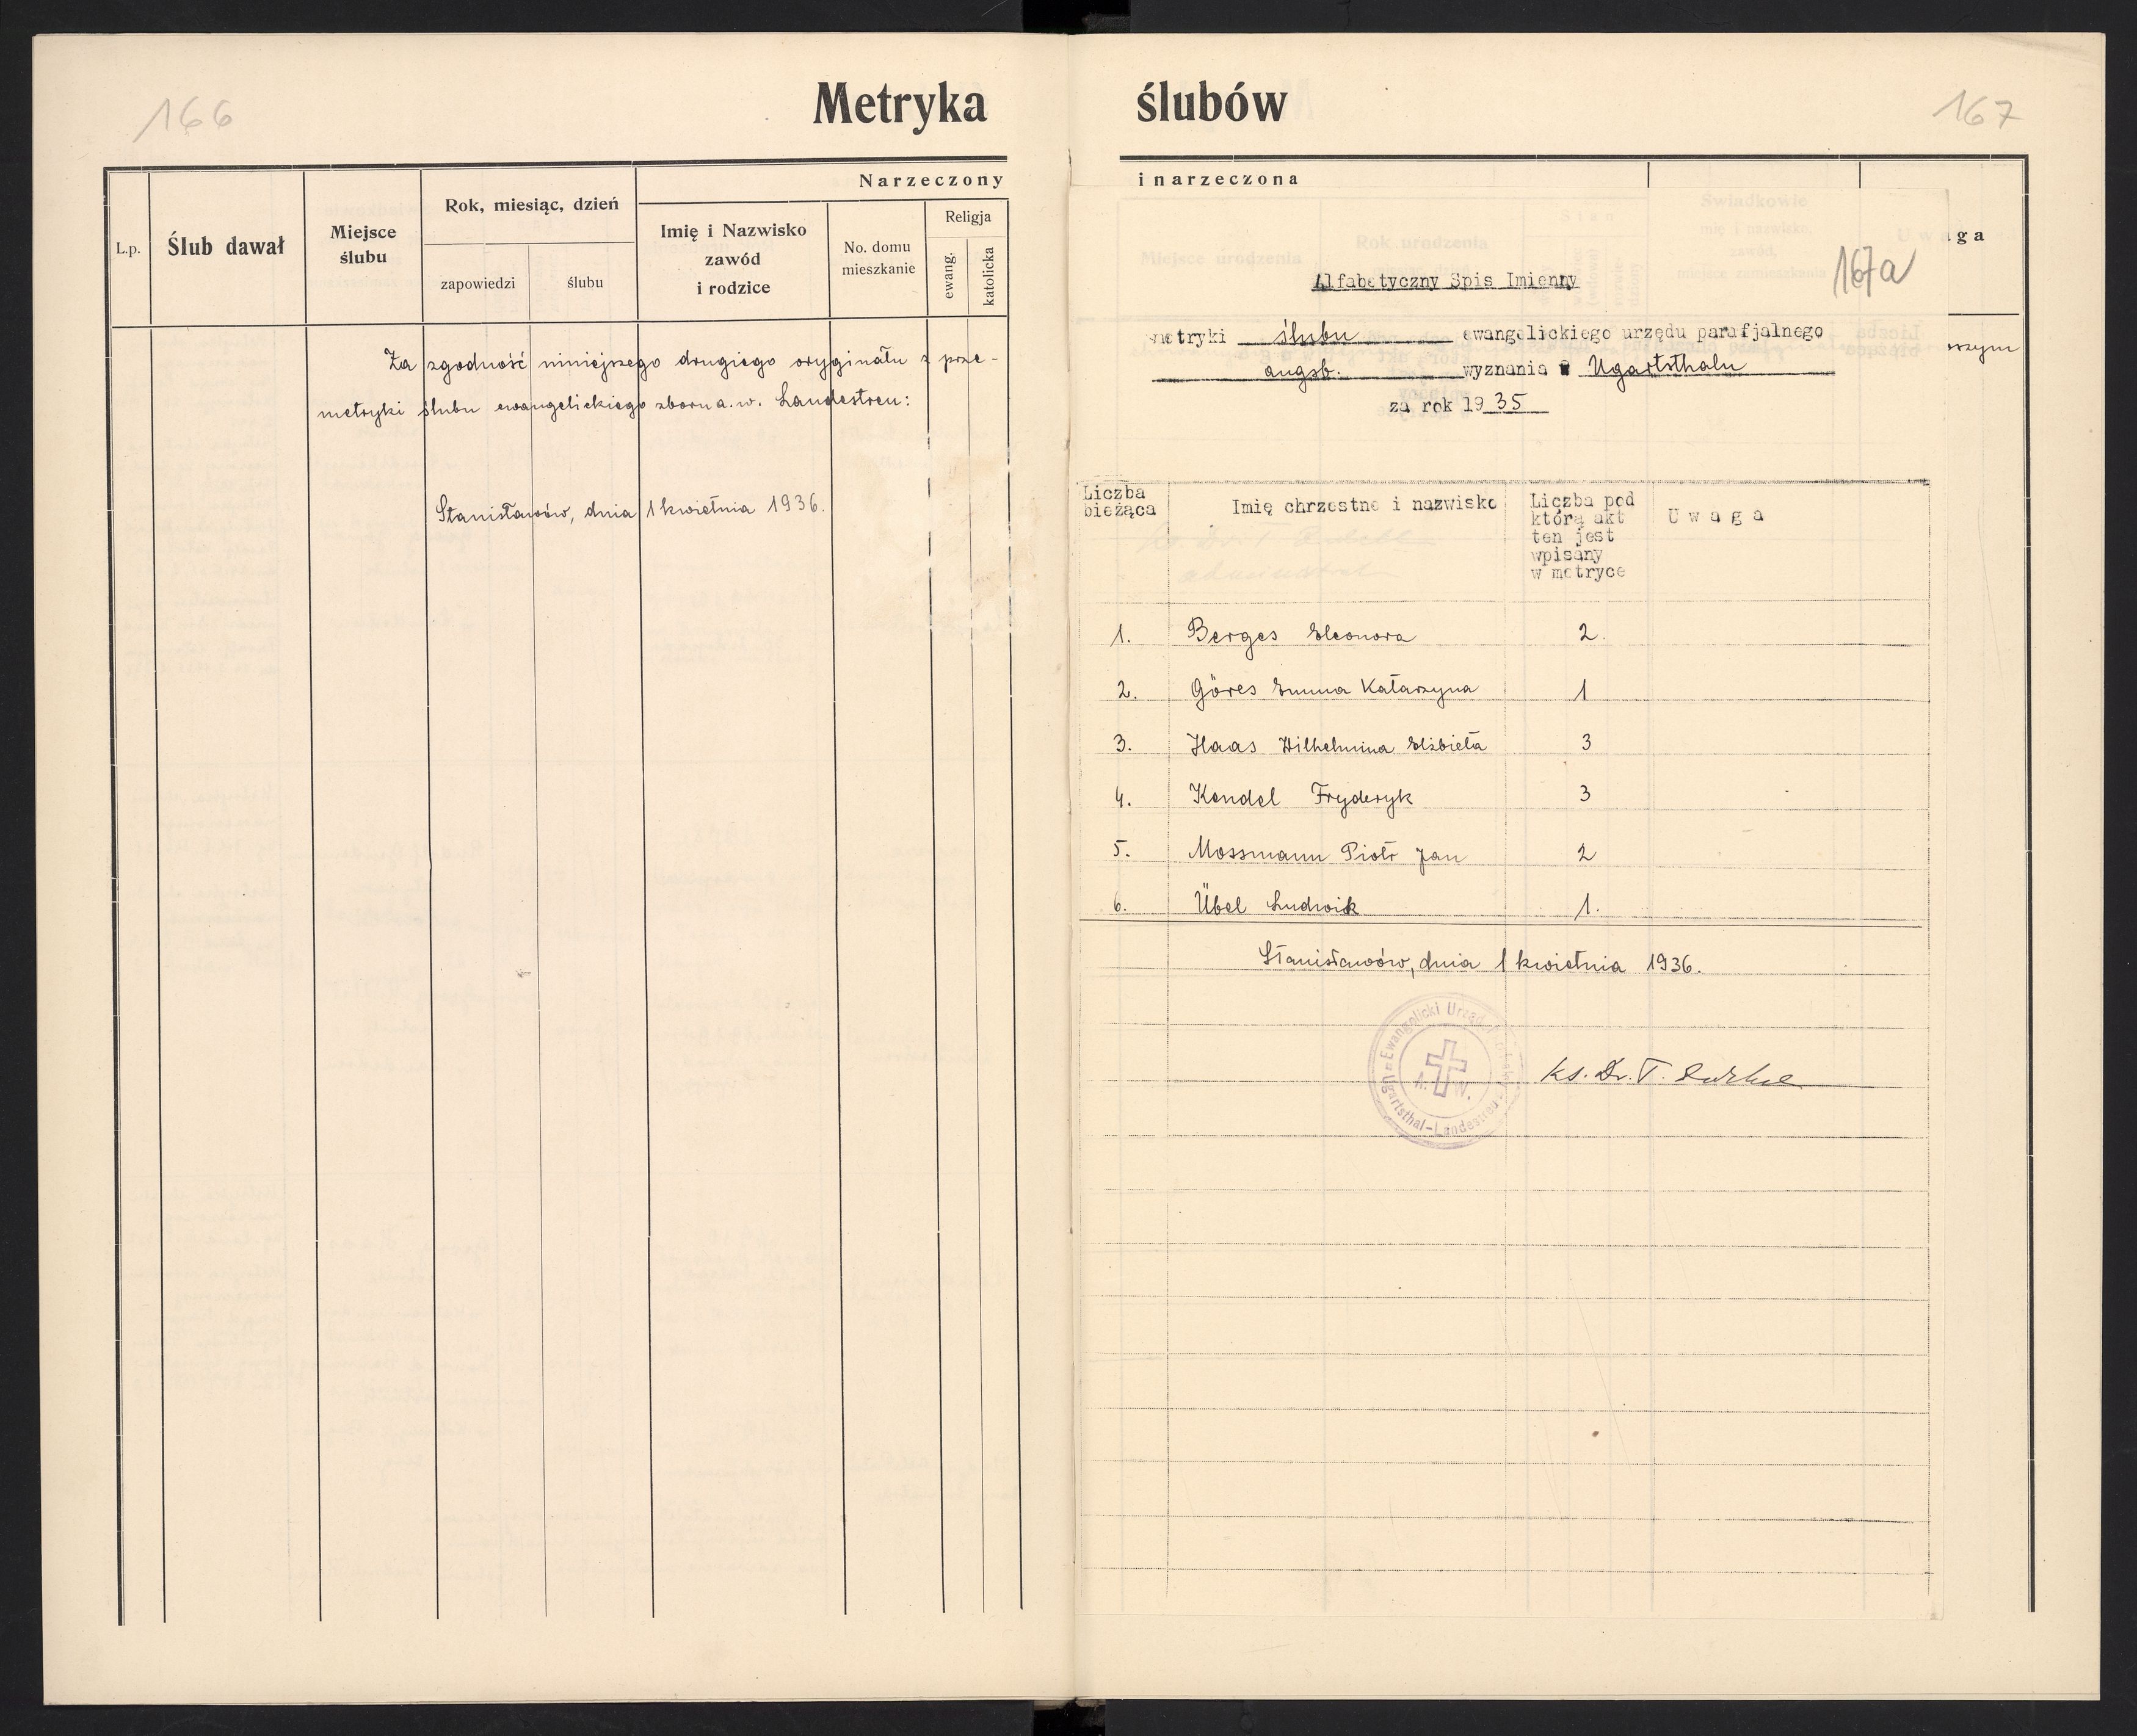 166
Metryka
L.p.
Ślub dawał
Miejsce
ślubu
Rok, miesiąc, dzień
zapowiedzi
ślubu
Narzeczony
Imię i Nazwisko
zawód
i rodzice
No. domu
mieszkanie
Religja
ewang.
katolicka
Za zgodność niniejszego drugiego oryginału z prze-
metryki ślubu ewangelickiego zboru a.w. Landestreu:
Stanisławów, dnia 1 kwietnia 1936.
ślubów
167
i narzeczona
aga
167a
Alfabetyczny Spis Imienny
metryki ślubu ewangelickiego urzędu parafjalnego
augsb. wyznania w Ugartsthalu
za rok 1935
Liczba
bieżąca
Imię chrzestne i nazwisko
Liczba pod
którą akt
ten jest
wpisany
w metryce
Uwaga
1. Berges Eleonora 2.
2. Göres Emma Katarzyna 1
3. Haas Wilhelmina Elżbieta 3
4. Kendel Fryderyk 3
5. Mossmann Piotr Jan 2
6. Übel Ludwik 1.
Stanisławów, dnia 1 kwietnia 1936.
Ewangelicki Urząd
A. W.
Ugartsthal-Landestreu
ks. Dr. T.